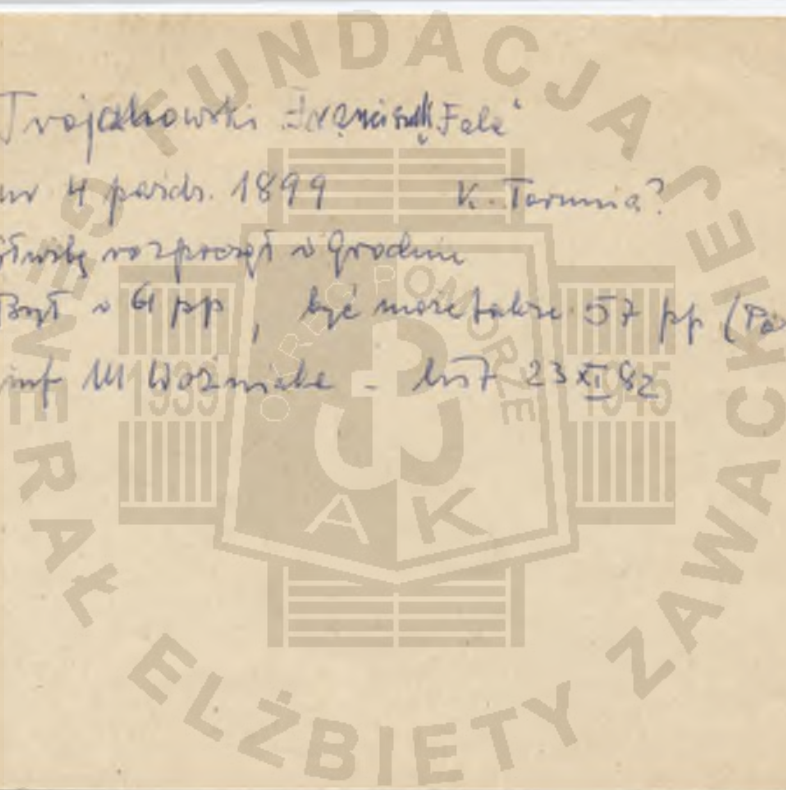 Trojczkowski Franciszek „Fala"
ur 4 paźdz. 1899 k. Torunia?
służbę rozpoczął w Grodnie
Był w 61 pp, być może także 57 pp (
inf M Woźniaka - list 23 XI 82
FUNDACJA GENERAŁ ELŻBIETY ZAWACKIEJ
OKRĘG POMORZE
1939 1945
AK